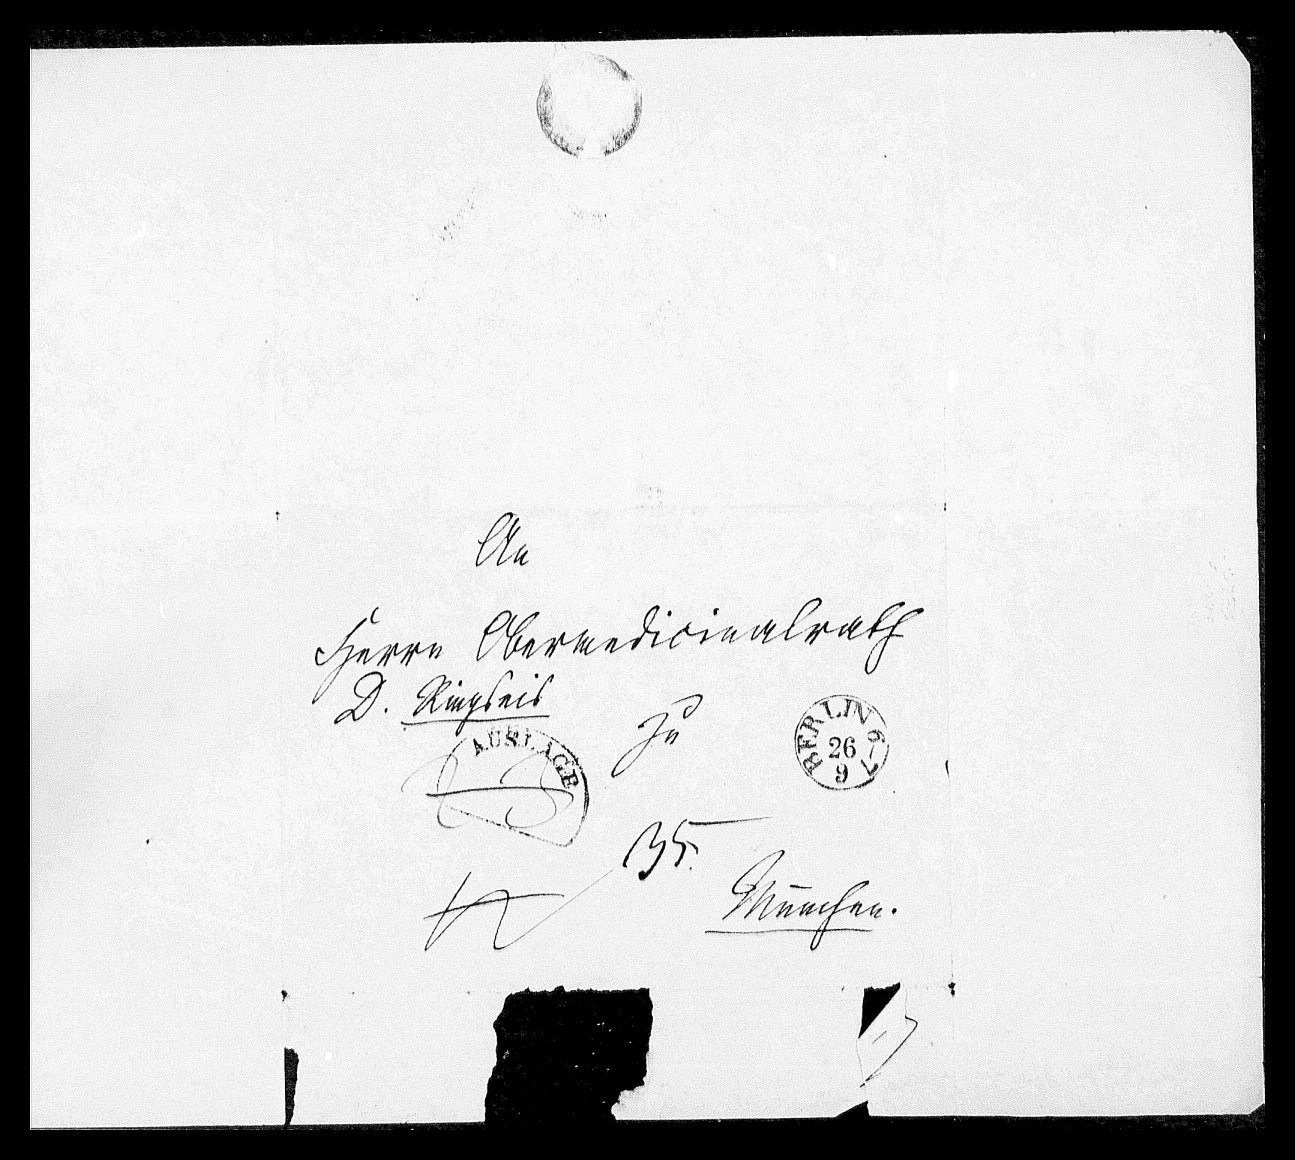 An
Herrn Obermedicinalrath
D. Ringseis
zu
AUSLAGE
BERLIN 6-7
26
9
35.
München.